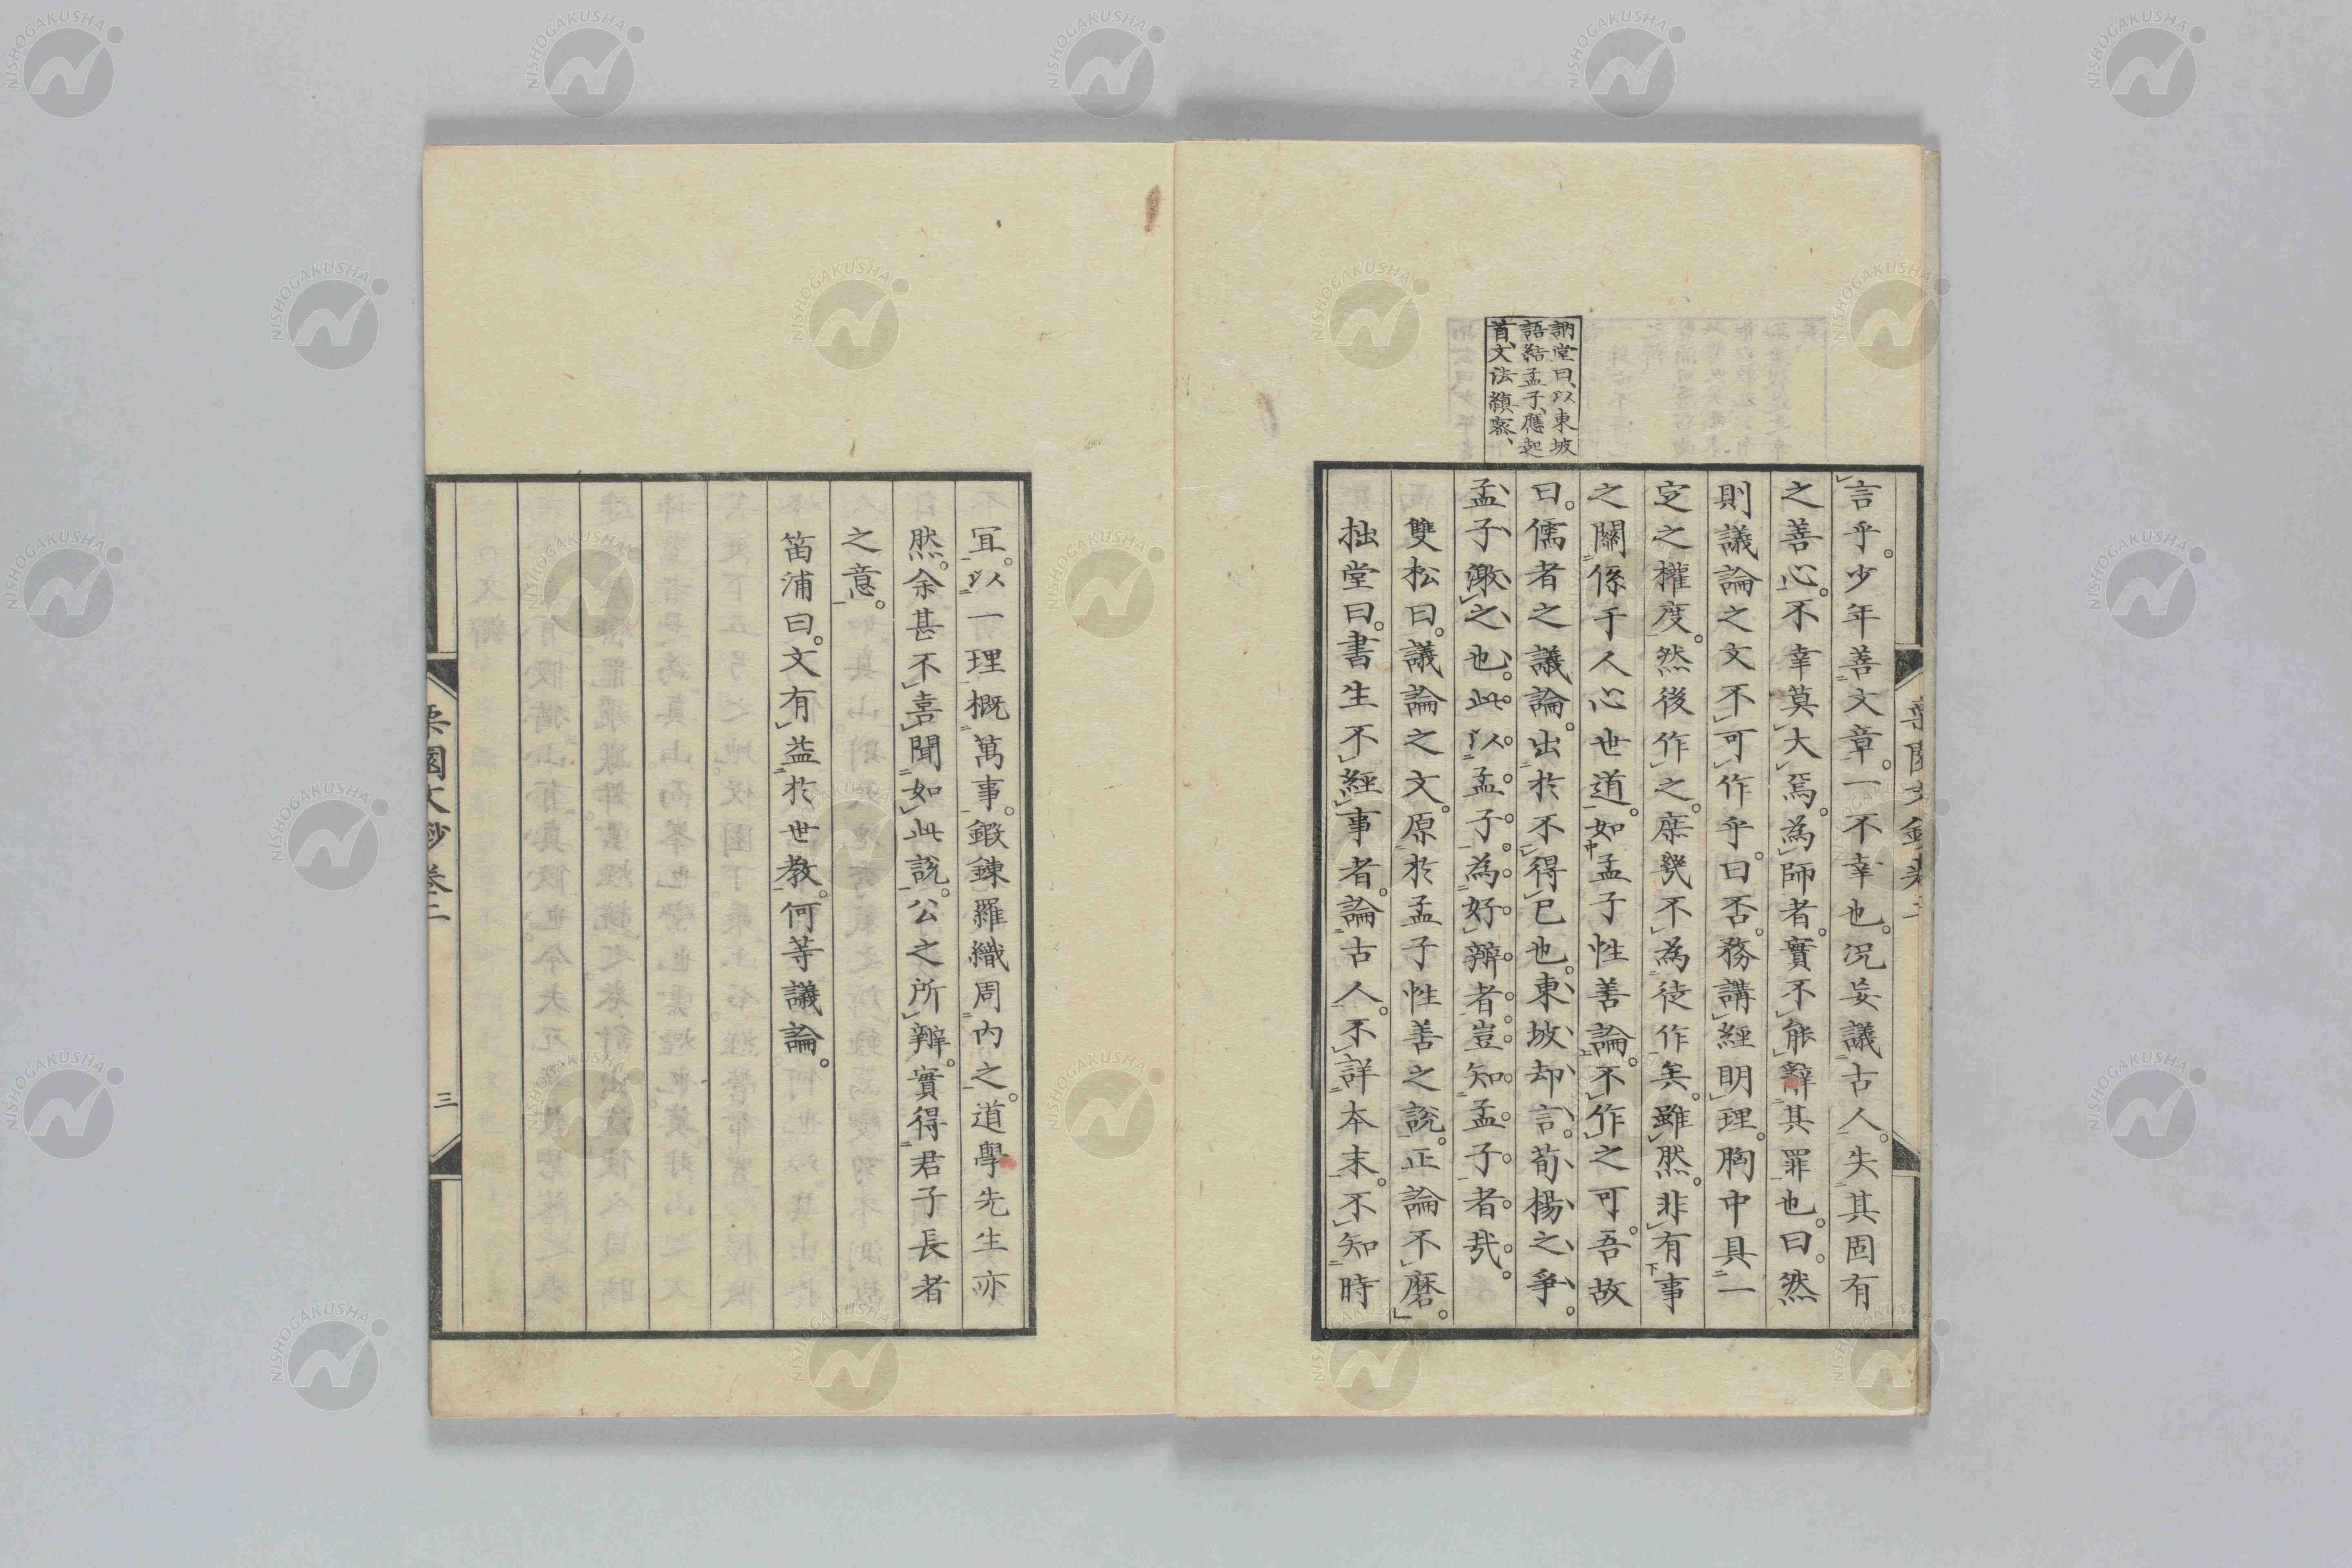 訥堂曰、以東坡
語結孟子、應起
首、文法縝密、
言乎。少年善文章。一不幸也。況妄議古人。失其固有
之善心。不幸莫大焉。為師者。實不能辭其罪也。曰。然
則議論之文不可作乎。曰否。務講經明理。胸中具一
定之權度。然後作之。庶幾不為徒作矣。雖然。非有事
之關係于人心世道。如孟子性善論。不作之可。吾故
曰。儒者之議論。出於不得已也。東坡却言。荀楊之爭。
孟子、激之也。此以孟子為好辯者。豈知孟子者哉。
雙松曰。議論之文。原於孟子性善之說。正論不磨。
拙堂曰。書生不經事者。論古人。不詳本末。不知時
冝。以一理概萬事。鍛鍊羅織周內之。道學先生亦
然。余甚不喜聞如此說。公之所辯。實得君子長者
之意。
笛浦曰。文有益於世教。何等議論。
栗園文鈔卷二
三